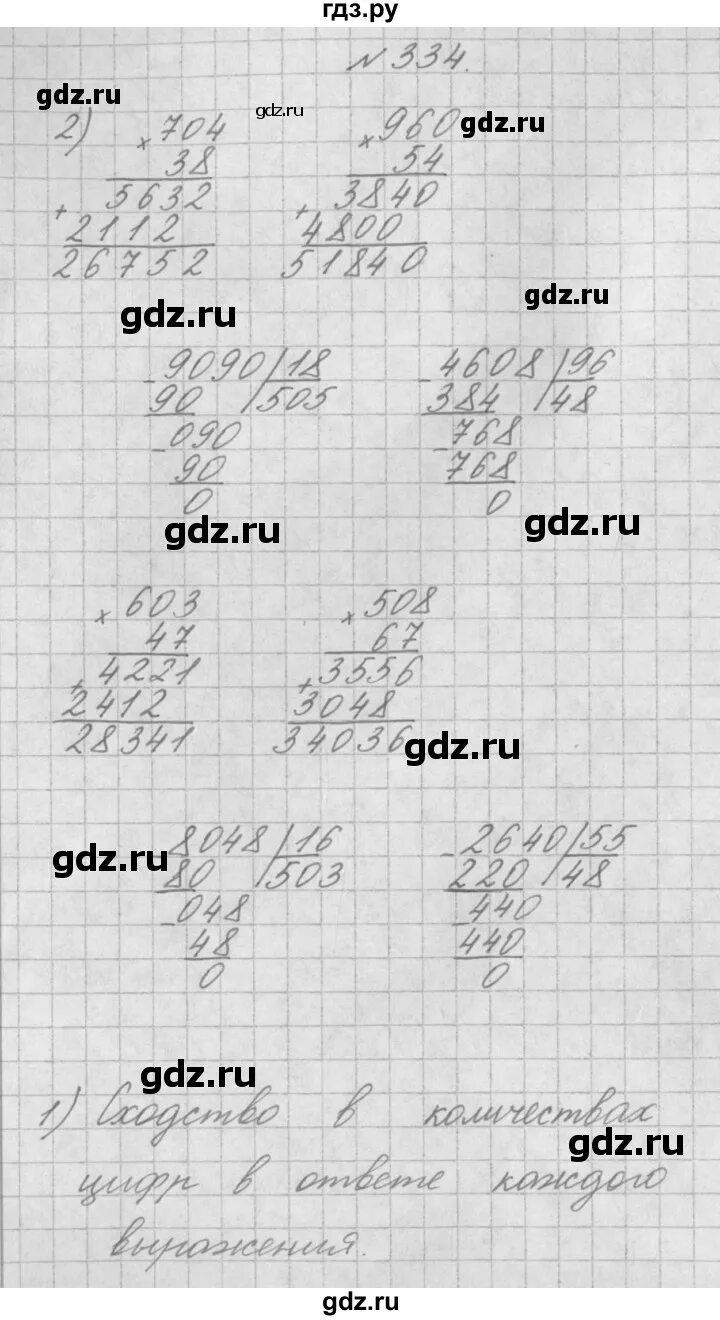 гдз.ру
№ 334.
gdz.ru
gdz.ru
2) × 704 × 960 gdz.ru
38 54
5632 3840
+ +
2112 4800
26752 51840
gdz.ru
gdz.ru
- 9090 | 18 - 4608 | 96
90 505 384 48
- 090 - 768
90 768
0 0
gdz.ru gdz.ru
× 603 × 508
47 67
+ 4221 + 3556
2412 3048
28341 34036
gdz.ru
8048 | 16 - 2640 | 55
gdz.ru
80 503 220 48
- 048 - 440
48 440
0 0
gdz.ru
1) Сходство в количествах
gdz.ru
цифр в ответе каждого
выражения.
gdz.ru